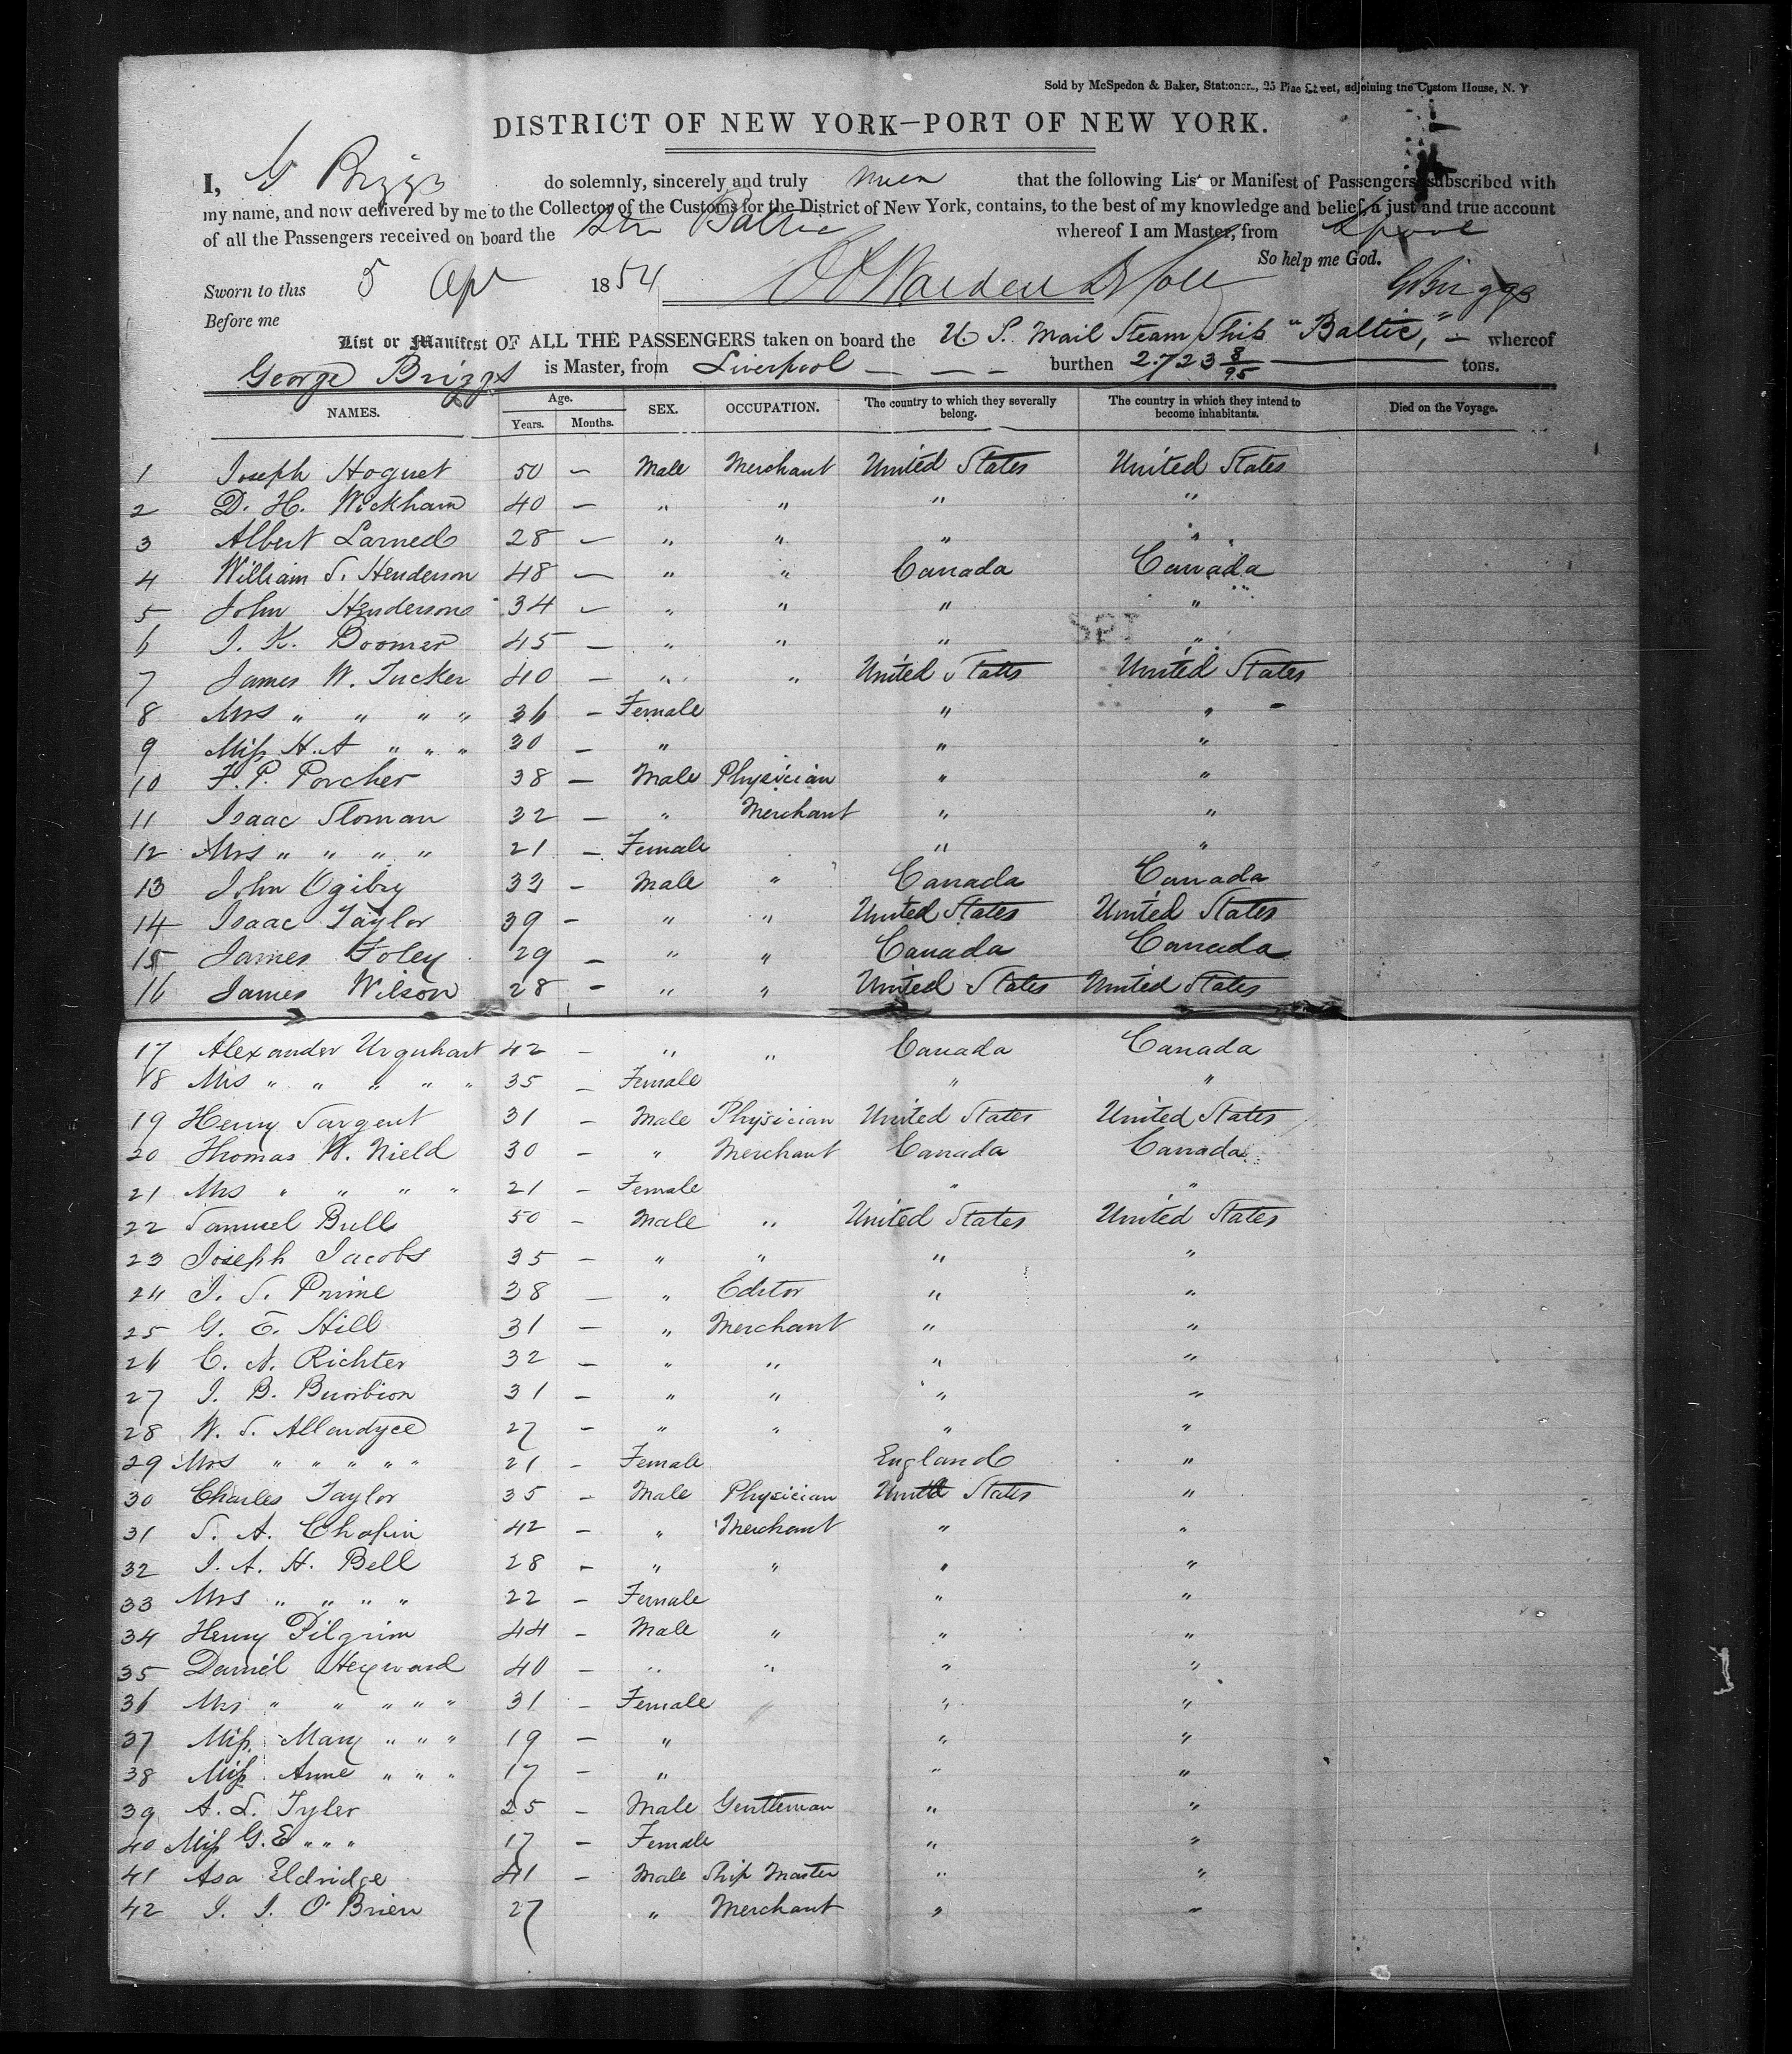 Sold by McSpedon & Baker, Stationers, 25 Pine Street, adjoining the Custom House, N. Y
DISTRICT OF NEW YORK—PORT OF NEW YORK.
I, G Briggs do solemnly, sincerely and truly swear that the following List or Manifest of Passengers, subscribed with
my name, and now delivered by me to the Collector of the Customs for the District of New York, contains, to the best of my knowledge and belief, a just and true account
of all the Passengers received on board the Str Baltic whereof I am Master, from Lpool
So help me God.
Sworn to this 5 Apr 1854 G Briggs
Before me
List or Manifest OF ALL THE PASSENGERS taken on board the U. S. Mail Steam Ship "Baltic," — whereof
George Briggs is Master, from Liverpool — — — burthen 2.723 8/95 tons.
NAMES. Age. Years. Months. SEX. OCCUPATION. The country to which they severally belong. The country in which they intend to become inhabitants. Died on the Voyage.
1 Joseph Hoguet 50 — Male Merchant United States United States
2 D. H. Wickham 40 — " " " "
3 Albert Larned 28 — " " " "
4 William S. Henderson 48 — " " Canada Canada
5 John Henderson 34 — " " " "
6 J. K. Boomer 45 — " " " "
7 James W. Tucker 40 — " " United States United States
8 Mrs " " " " 36 — Female " "
9 Miss H. A " " " 30 — " " "
10 F. P. Porcher 38 — Male Physician " "
11 Isaac Sloman 32 — " Merchant " "
12 Mrs " " " " 21 — Female " "
13 John Ogilby 33 — Male " Canada Canada
14 Isaac Taylor 39 — " " United States United States
15 James Foley 29 — " " Canada Canada
16 James Wilson 28 — " " United States United States
17 Alexander Urquhart 42 — " " Canada Canada
18 Mrs " " " " " 35 — Female " "
19 Henry Sargent 31 — Male Physician United States United States
20 Thomas W. Nield 30 — " Merchant Canada Canada
21 Mrs " " " " 21 — Female " "
22 Samuel Bulls 50 — Male " United States United States
23 Joseph Jacobs 35 — " " " "
24 J. S. Prime 38 — " Editor " "
25 G. E. Hill 31 — " Merchant " "
26 C. N. Richter 32 — " " " "
27 J. B. 31 — " " " "
28 W. S. Allardyce 27 — " " " "
29 Mrs " " " " " 21 — Female England "
30 Charles Taylor 35 — Male Physician United States "
31 S. A. Chapin 42 — " Merchant " "
32 J. A. H. Bell 28 — " " " "
33 Mrs " " " " 22 — Female " "
34 Henry Pilgrim 44 — Male " " "
35 Daniel Heyward 40 — " " " "
36 Mrs " " " " " 31 — Female " "
37 Miss Mary " " " 19 — " " "
38 Miss Anne " " " 17 — " " "
39 A. L. Tyler 25 — Male Gentleman " "
40 Miss G. E " " " 17 — Female " "
41 Asa Eldridge 41 — Male Ship Master " "
42 J. J. O'Brien 27 " Merchant " "